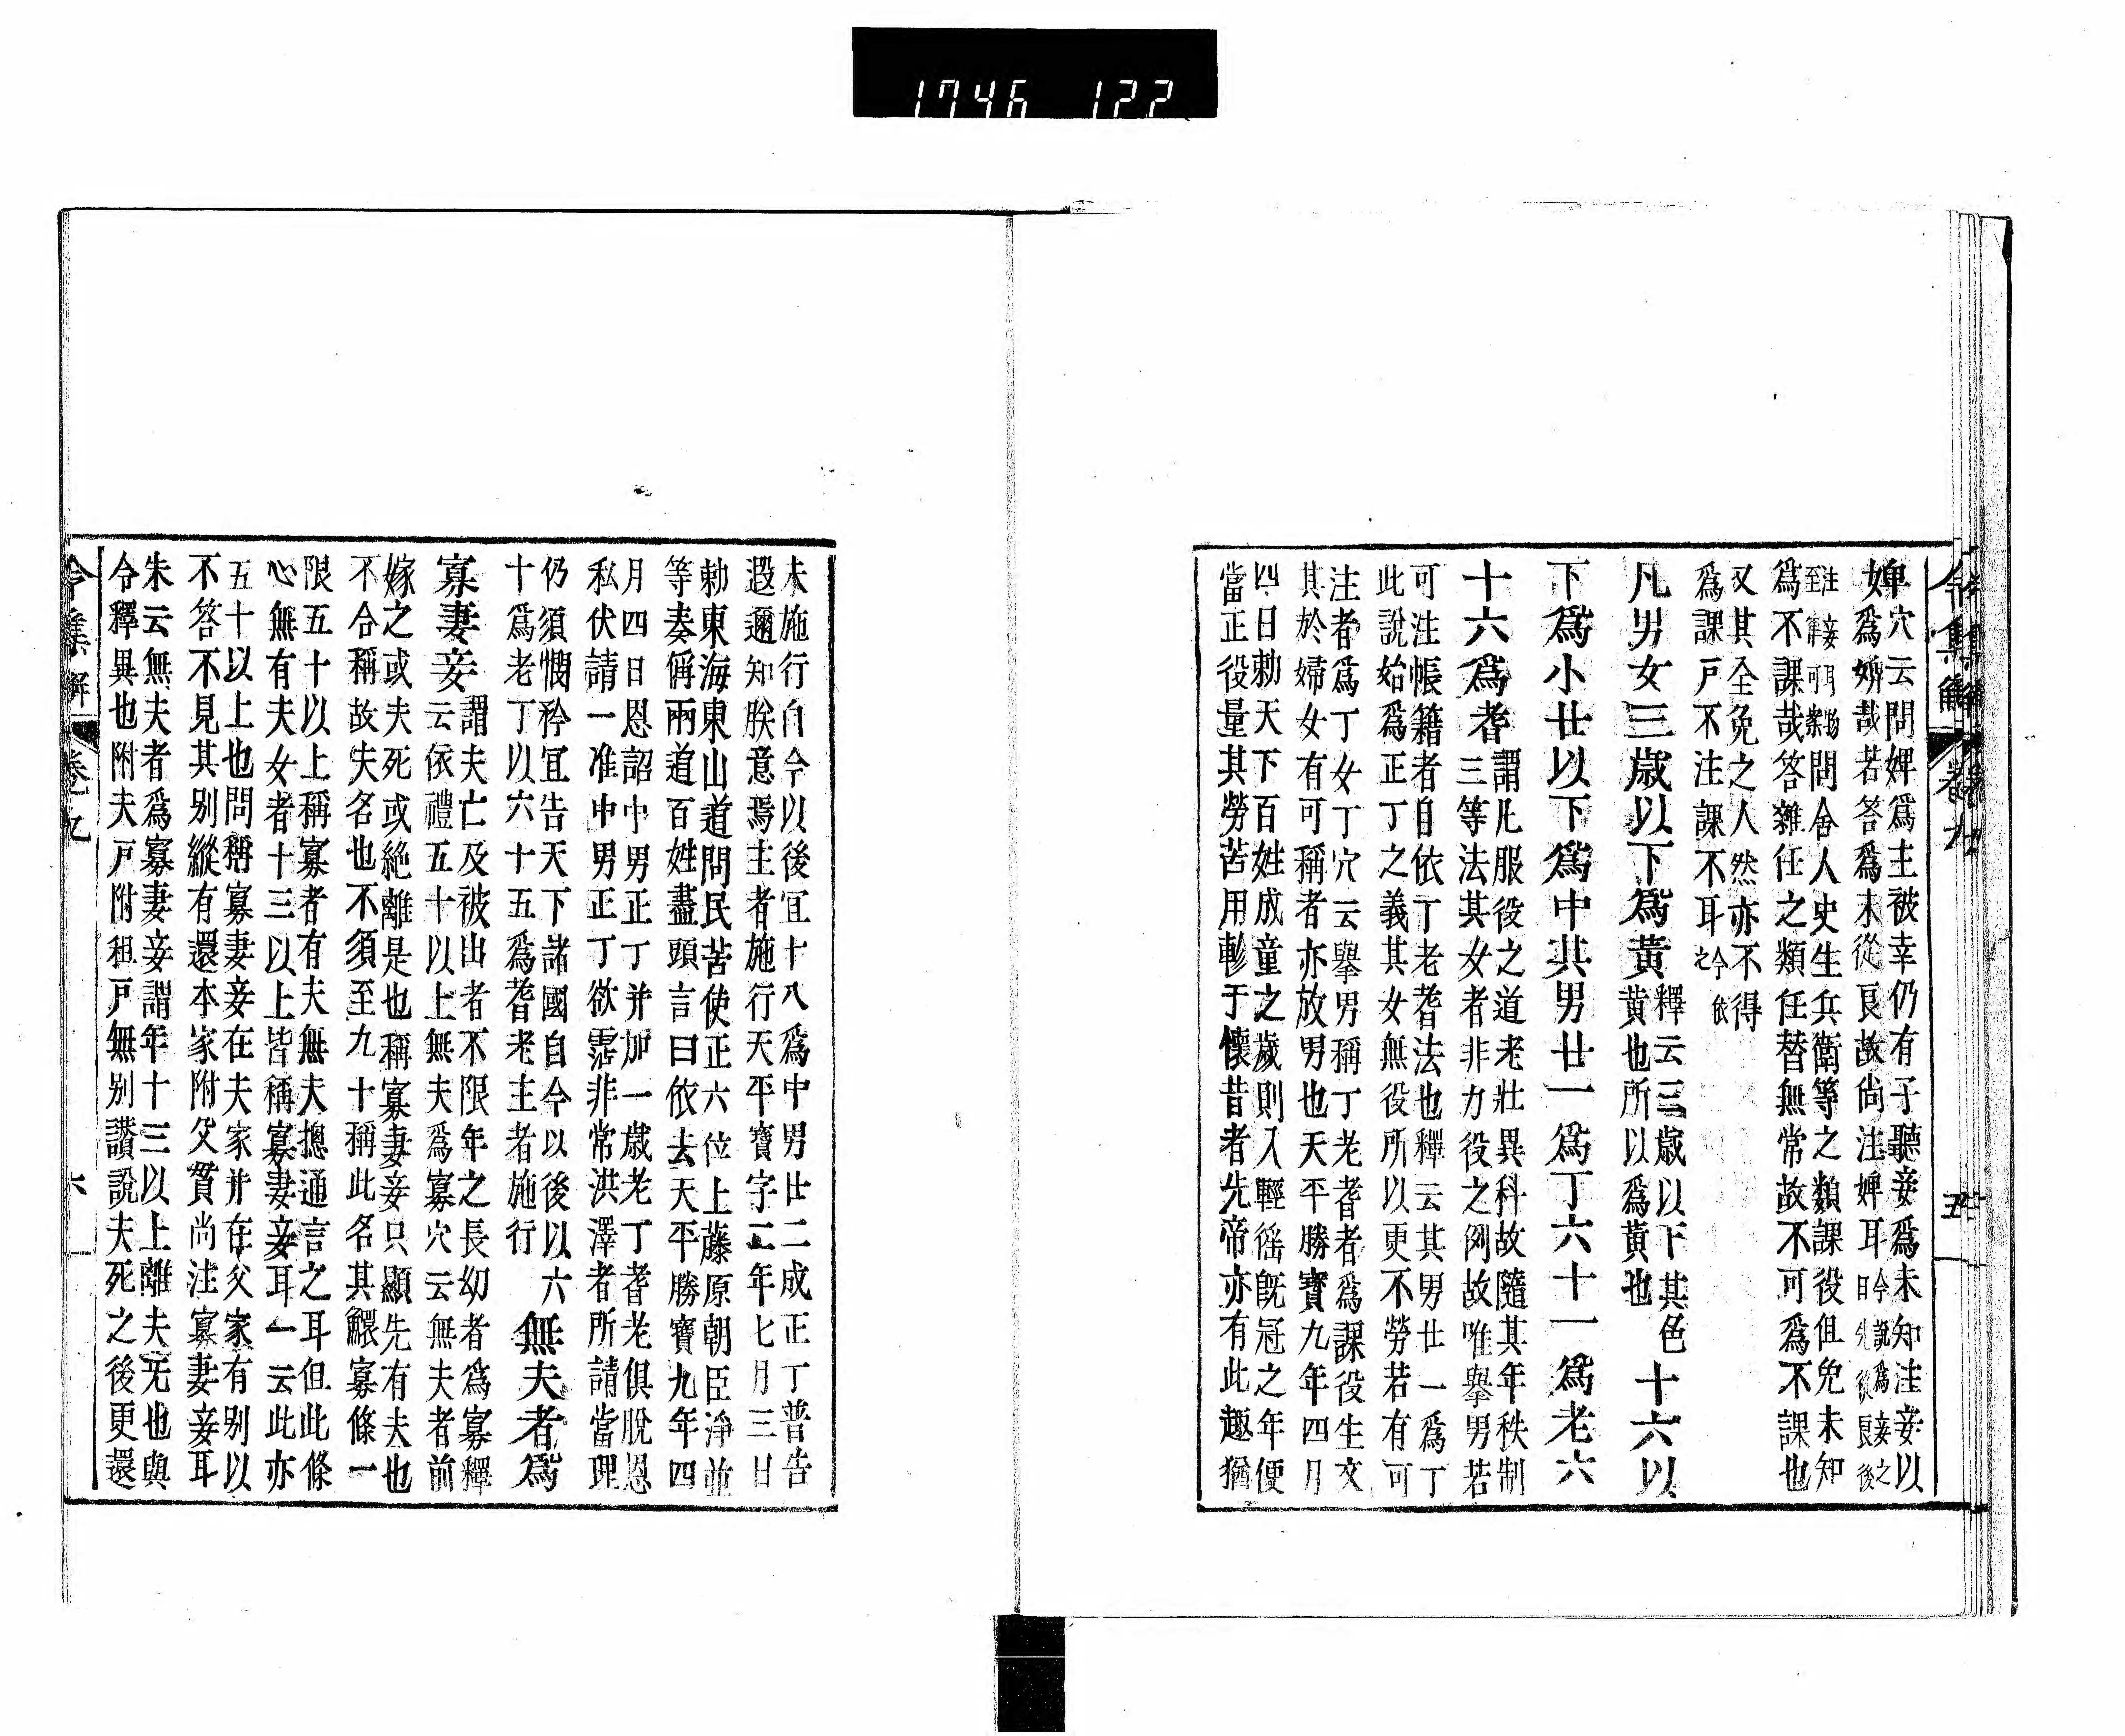 1746 122
令集解 卷九 五
婢穴云問婢爲主被幸仍有子聽妾爲未知注妾以
婢爲婢哉若答爲未從良故尚注婢耳今說爲妾之
日先從良後
注妾
至
問舍人史生兵衛等之類課役但免未知
爲不課哉答雜任之類任替無常故不可爲不課也
又其全免之人然亦不得
爲課戶不注課不耳今依
之
凡男女三歲以下爲黃釋云三歲以下其色
黃也所以爲黃也十六以
下爲小廿以下爲中其男廿一爲丁六十一爲老六
十六爲耆謂凡服役之道老壯異科故隨其年秩制
三等法其女者非力役之例故唯擧男若
可注帳籍者自依丁老耆法也釋云其男廿一爲丁
此說始爲正丁之義其女無役所以更不勞若有可
注者爲丁女丁穴云擧男稱丁老耆者爲課役生文
其於婦女有可稱者亦放男也天平勝寶九年四月
四日勅天下百姓成童之歲則入輕徭旣冠之年便
當正役量其勞苦用軫于懷昔者先帝亦有此趣猶
未施行自今以後宜十八爲中男廿二成正丁普告
遐邇知朕意焉主者施行天平寶字二年七月三日
勅東海東山道問民苦使正六位上藤原朝臣淨並
等奏偁兩道百姓盡頭言曰依去天平勝寶九年四
月四日恩詔中男正丁并加一歲老丁耆老俱脫恩
私伏請一准中男正丁欲霑非常洪澤者所請當理
仍須憫矜宜告天下諸國自今以後以六
十爲老丁以六十五爲耆老主者施行無夫者爲
寡妻妾謂夫亡及被出者不限年之長幼者爲寡釋
云依禮五十以上無夫爲寡穴云無夫者前
嫁之或夫死或絶離是也稱寡妻妾只顯先有夫也
不合稱故失名也不須至九十稱此名其鰥寡條一
限五十以上稱寡者有夫無夫揔通言之耳但此條
心無有夫女者十三以上皆稱寡妻妾耳一云此亦
五十以上也問稱寡妻妾在夫家并在父家有別以
不答不見其別縱有還本家附父貫尚注寡妻妾耳
朱云無夫者爲寡妻妾謂年十三以上離夫无也與
令釋異也附夫戶附租戶無別讚說夫死之後更還
令集解 卷九 六